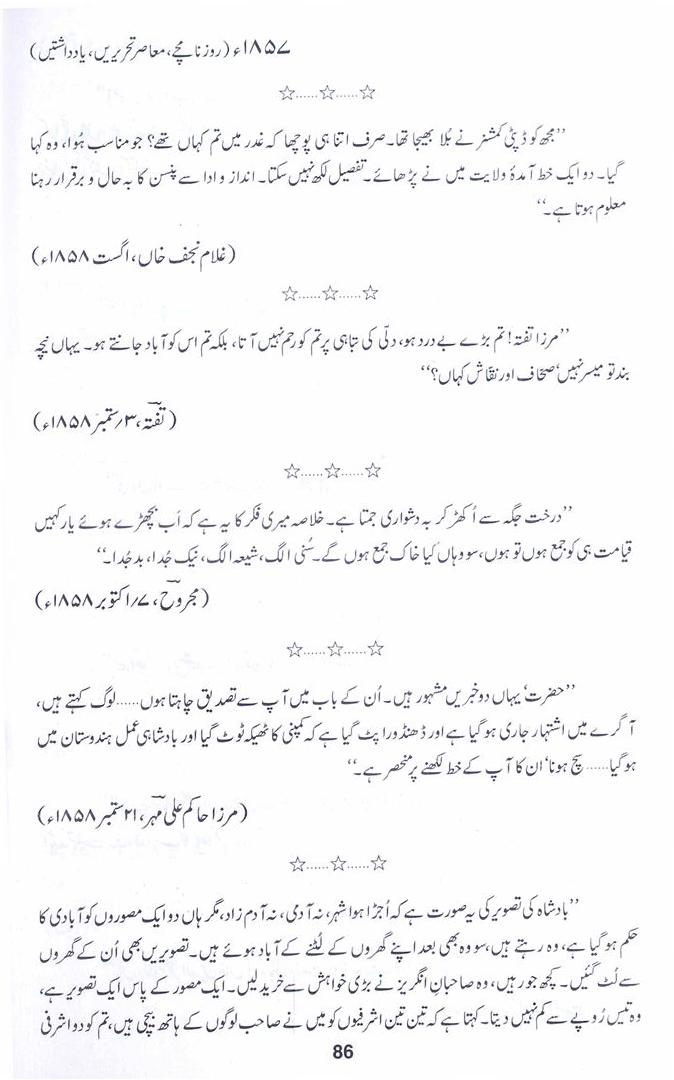 ۱۸۵۷ء (روزنامچے، معاصر تحریریں، یادداشتیں)
☆......☆......☆
’’مجھ کو ڈپٹی کمشنر نے بُلا بھیجا تھا۔ صرف اتنا ہی پوچھا کہ غدر میں تم کہاں تھے؟ جو مناسب ہُوا، وہ کہا
گیا۔ دو ایک خط آمدۂ ولایت میں نے پڑھائے۔ تفصیل لکھ نہیں سکتا۔ انداز و ادا سے پنسن کا بہ حال و برقرار رہنا
معلوم ہوتا ہے۔‘‘
(غلام نجف خاں، اگست ۱۸۵۸ء)
☆......☆......☆
’’مرزا تفتہ! تم بڑے بے درد ہو، دلّی کی تباہی پر تم کو رحم نہیں آتا، بلکہ تم اس کو آباد جانتے ہو۔ یہاں نیچہ
بند تو میسر نہیں‘ صحّاف اور نقّاش کہاں؟‘‘
(تفتہؔ، ۳؍ ستمبر ۱۸۵۸ء)
☆......☆......☆
’’درخت جگہ سے اُکھڑ کر بہ دشواری جمتا ہے۔ خلاصہ میری فکر کا یہ ہے کہ اَب بچھڑے ہوئے یار کہیں
قیامت ہی کو جمع ہوں تو ہوں، سو وہاں کیا خاک جمع ہوں گے۔ سُنی الگ، شیعہ الگ، نیک جُدا، بد جُدا۔‘‘
(مجروحؔ، ۷؍ اکتوبر ۱۸۵۸ء)
☆......☆......☆
’’حضرت‘ یہاں دو خبریں مشہور ہیں۔ اُن کے باب میں آپ سے تصدیق چاہتا ہوں......لوگ کہتے ہیں،
آگرے میں اشتہار جاری ہو گیا ہے اور ڈھنڈورا پٹ گیا ہے کہ کمپنی کا ٹھیکہ ٹوٹ گیا اور بادشاہی عمل ہندوستان میں
ہو گیا......سچ ہونا‘ ان کا آپ کے خط لکھنے پر منحصر ہے۔‘‘
(مرزا حاکم علی مہرؔ، ۲۱ ستمبر ۱۸۵۸ء)
☆......☆......☆
’’بادشاہ کی تصویر کی یہ صورت ہے کہ اُجڑا ہوا شہر، نہ آدمی، نہ آدم زاد، مگر ہاں دو ایک مصوروں کو آبادی کا
حکم ہو گیا ہے، وہ رہتے ہیں، سو وہ بھی بعد اپنے گھروں کے لُٹنے کے آباد ہوئے ہیں۔ تصویریں بھی اُن کے گھروں
سے لُٹ گئیں۔ کچھ جو رہیں، وہ صاحبانِ انگریز نے بڑی خواہش سے خرید لیں۔ ایک مصور کے پاس ایک تصویر ہے،
وہ تیس رُوپے سے کم نہیں دیتا۔ کہتا ہے کہ تین تین اشرفیوں کو میں نے صاحب لوگوں کے ہاتھ بیچی ہیں، تم کو دو اشرفی
86